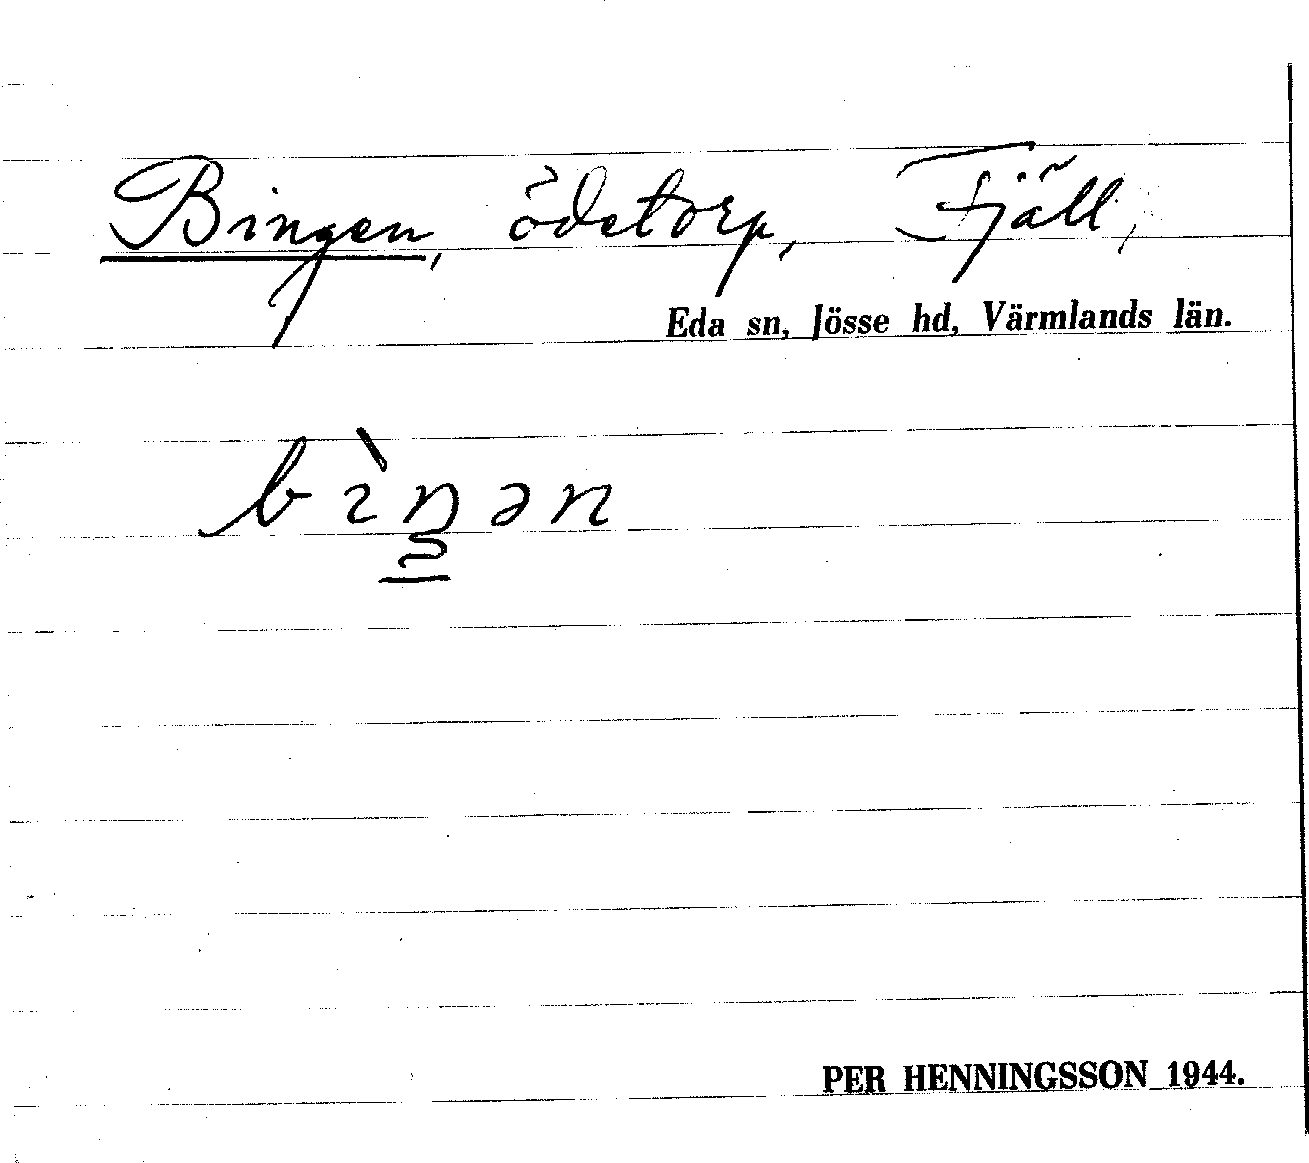 Bingen, ödetorp, Fjäll,
Eda sn, Jösse hd, Värmlands län.
bìŋən
PER HENNINGSSON 1944.